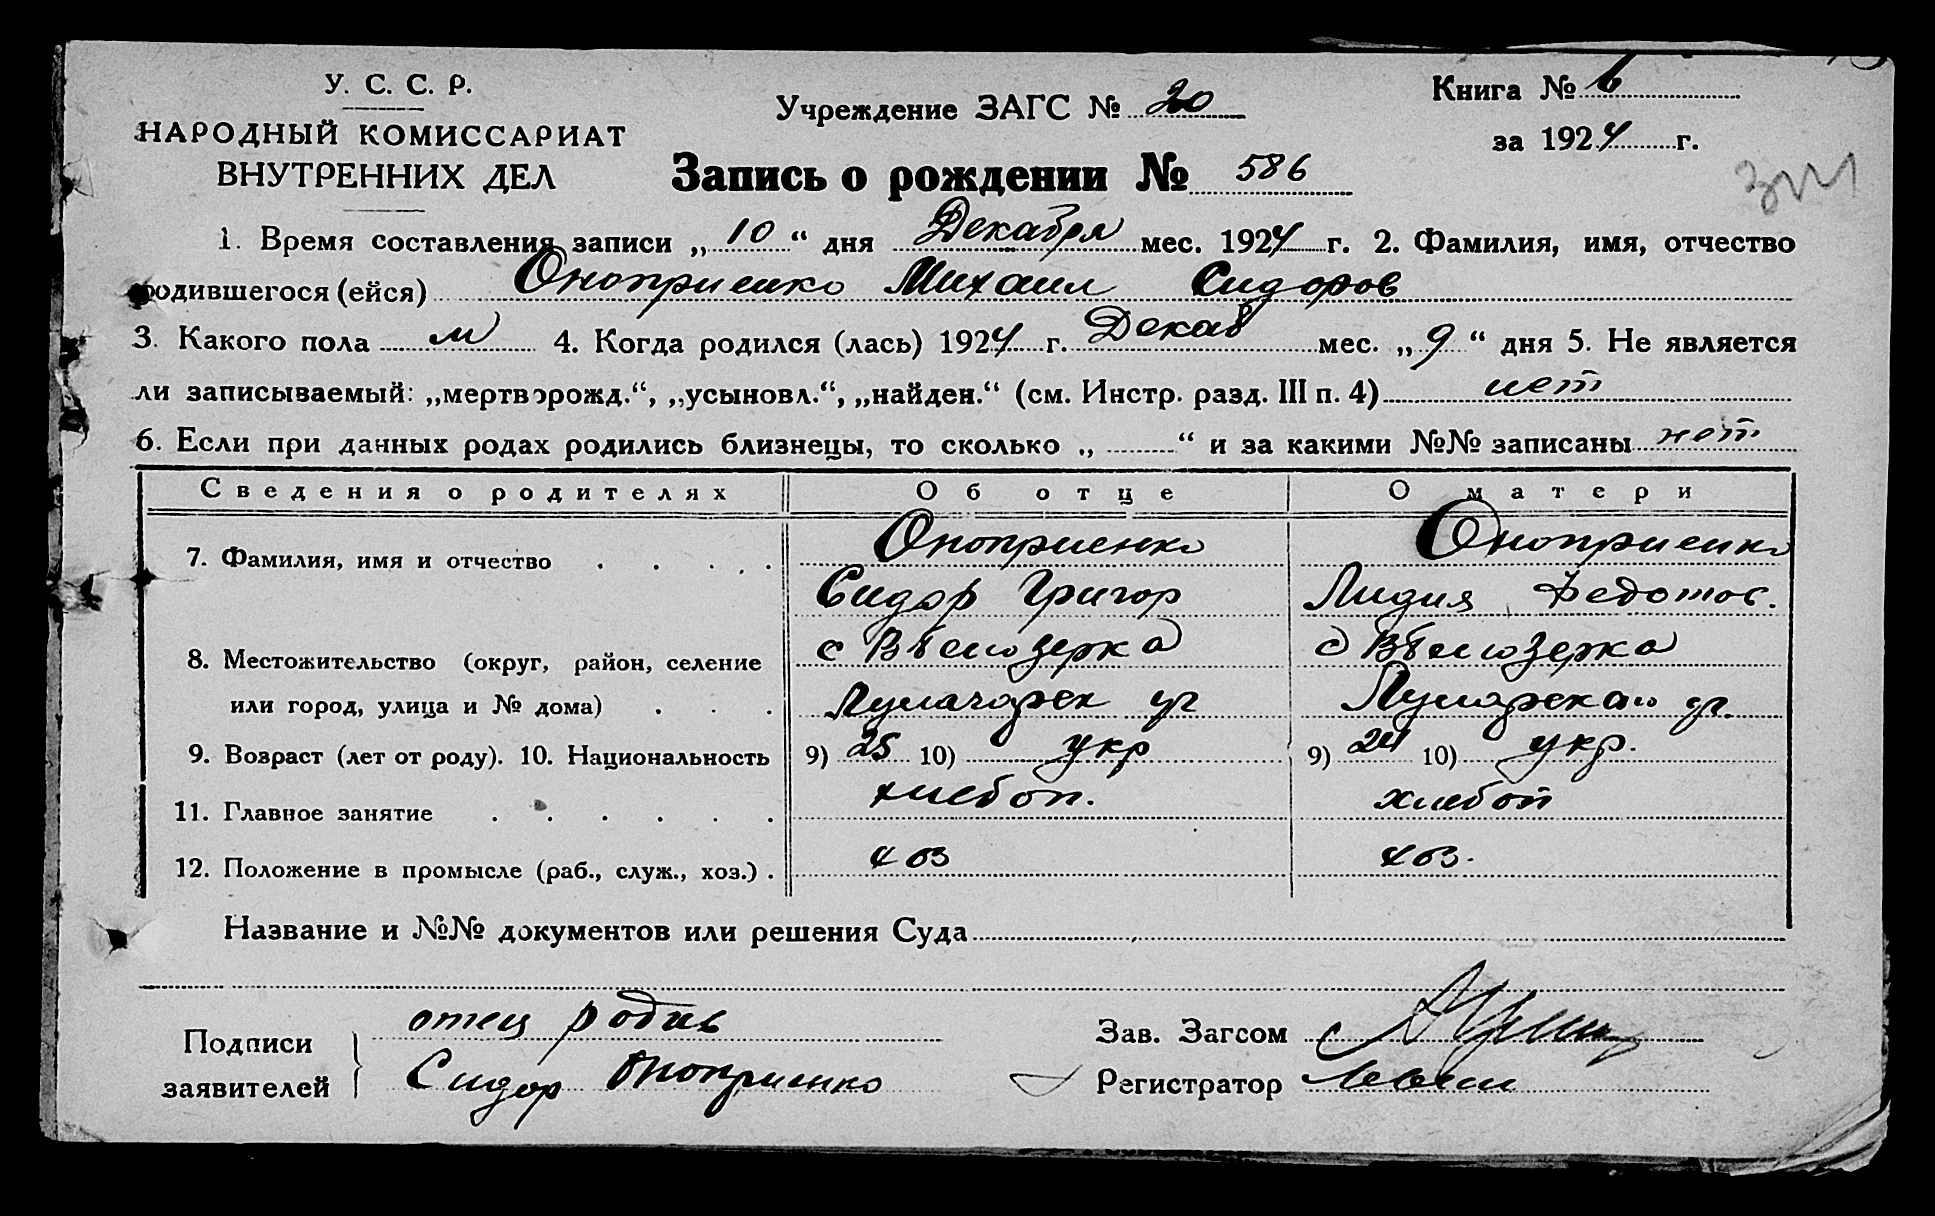 У. С. С. Р.
НАРОДНЫЙ КОМИССАРИАТ
ВНУТРЕННИХ ДЕЛ
Учреждение ЗАГС № 20
Книга № 6
за 1924 г.
Запись о рождении № 586
1. Время составления записи „ 10 “ дня Декабря мес. 1924 г. 2. Фамилия, имя, отчество
родившегося (ейся) Оноприенко Михаил Сидоров
3. Какого пола м 4. Когда родился (лась) 1924 г. Декаб мес. „ 9 “ дня 5. Не является
ли записываемый: „мертворожд.“, „усыновл.“, „найден.“ (см. Инстр. разд. III п. 4) нет
6. Если при данных родах родились близнецы, то сколько „ “ и за какими №№ записаны нет
Сведения о родителях Об отце О матери
7. Фамилия, имя и отчество . . . . Оноприенко Оноприенко
Сидор Григор Лидия Федотов.
8. Местожительство (округ, район, селение с Белозерка с Белозерка
или город, улица и № дома) . . .
9. Возраст (лет от роду). 10. Национальность 9) 25 10) укр 9) 24 10) укр.
11. Главное занятие . . . . . . хлебоп. хлебоп
12. Положение в промысле (раб., служ., хоз.) . хоз хоз.
Название и №№ документов или решения Суда
Подписи
заявителей
отец родив
Сидор Оноприенко
Зав. Загсом
Регистратор